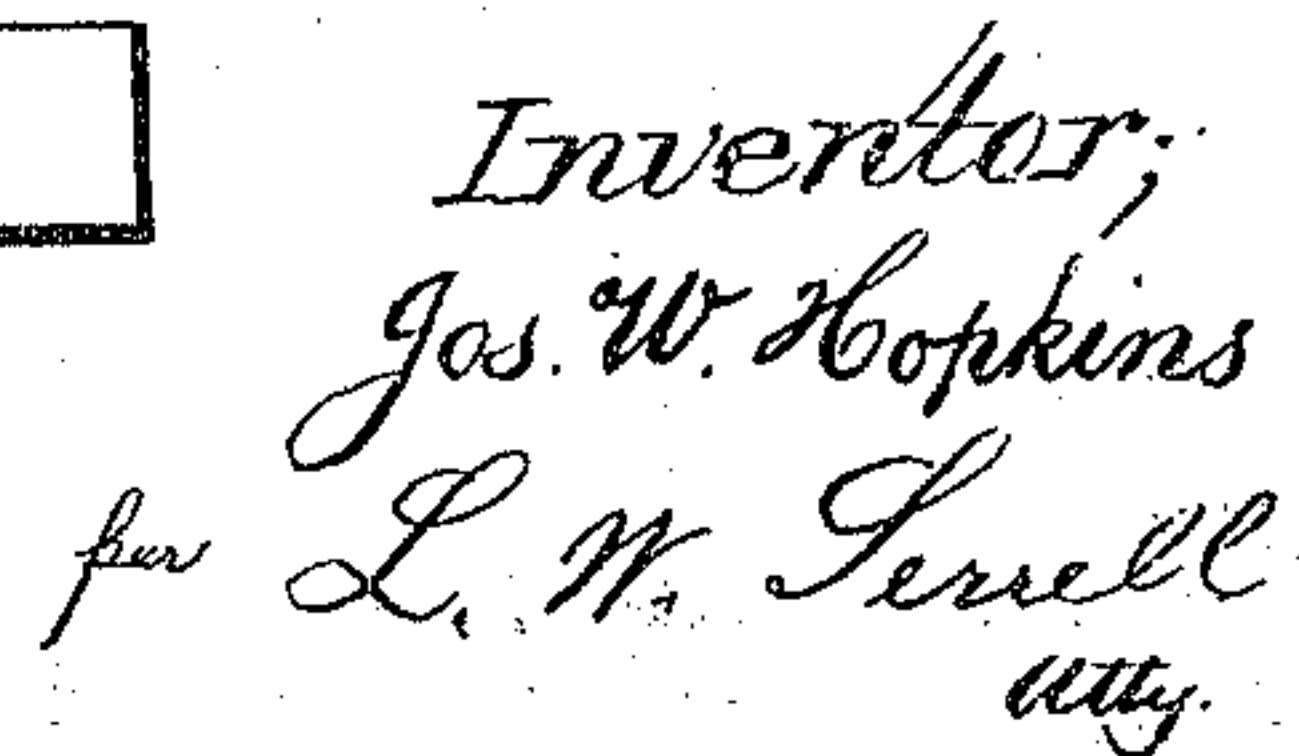 Inventor;
Jos. W. Hopkins
per L. W. Serrell
Atty.